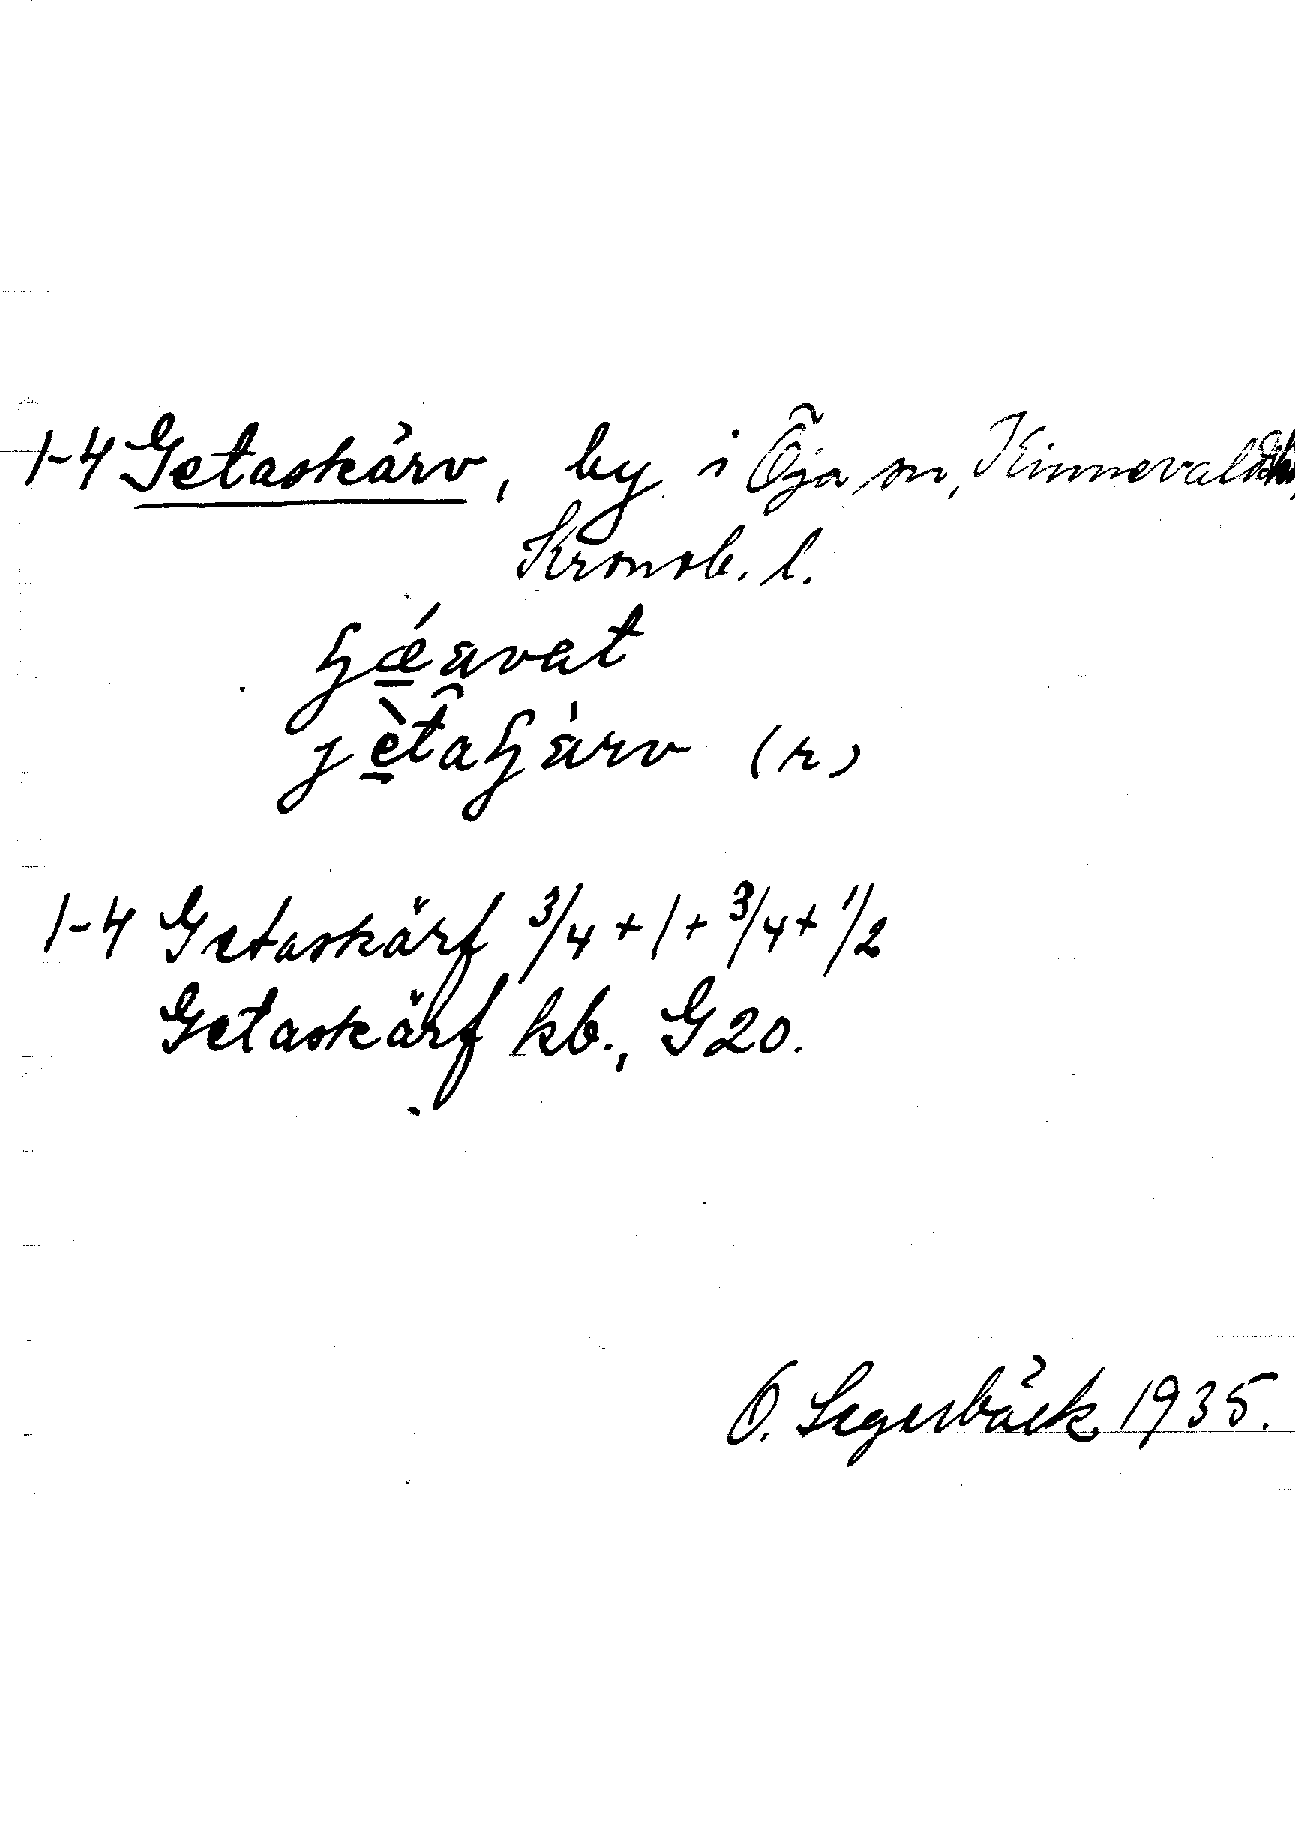 1-4 Getaskärv, by i Öja sn, Kinnevalds
Kronob. l.
(r)
1-4 Getaskärf 3/4 + 1 + 3/4 + 1/2
Getaskärf kb., G20.
O. Segerbäck 1935.